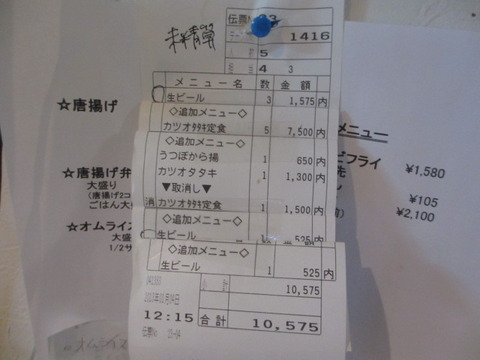 伝票
1416
5
4 3
メニュー名 数 金額
生ビール 3 1,575内
◇追加メニュー◇
カツオタタキ定食 5 7,500内
◇追加メニュー◇
うつぼから揚 1 650内
カツオタタキ 1 1,300内
▼取消し▼
消 カツオタタキ定食 1 1,500内
◇追加メニュー◇
生ビール 1 525内
◇追加メニュー◇
生ビール 1 525内
小計 10,575
12:15 合計 10,575
☆唐揚げ
☆唐揚げ弁
大盛り
(唐揚げ2コ
ごはん大
☆オムライス
大盛
1/2サ
メニュー
ビフライ ¥1,580
¥105
¥2,100